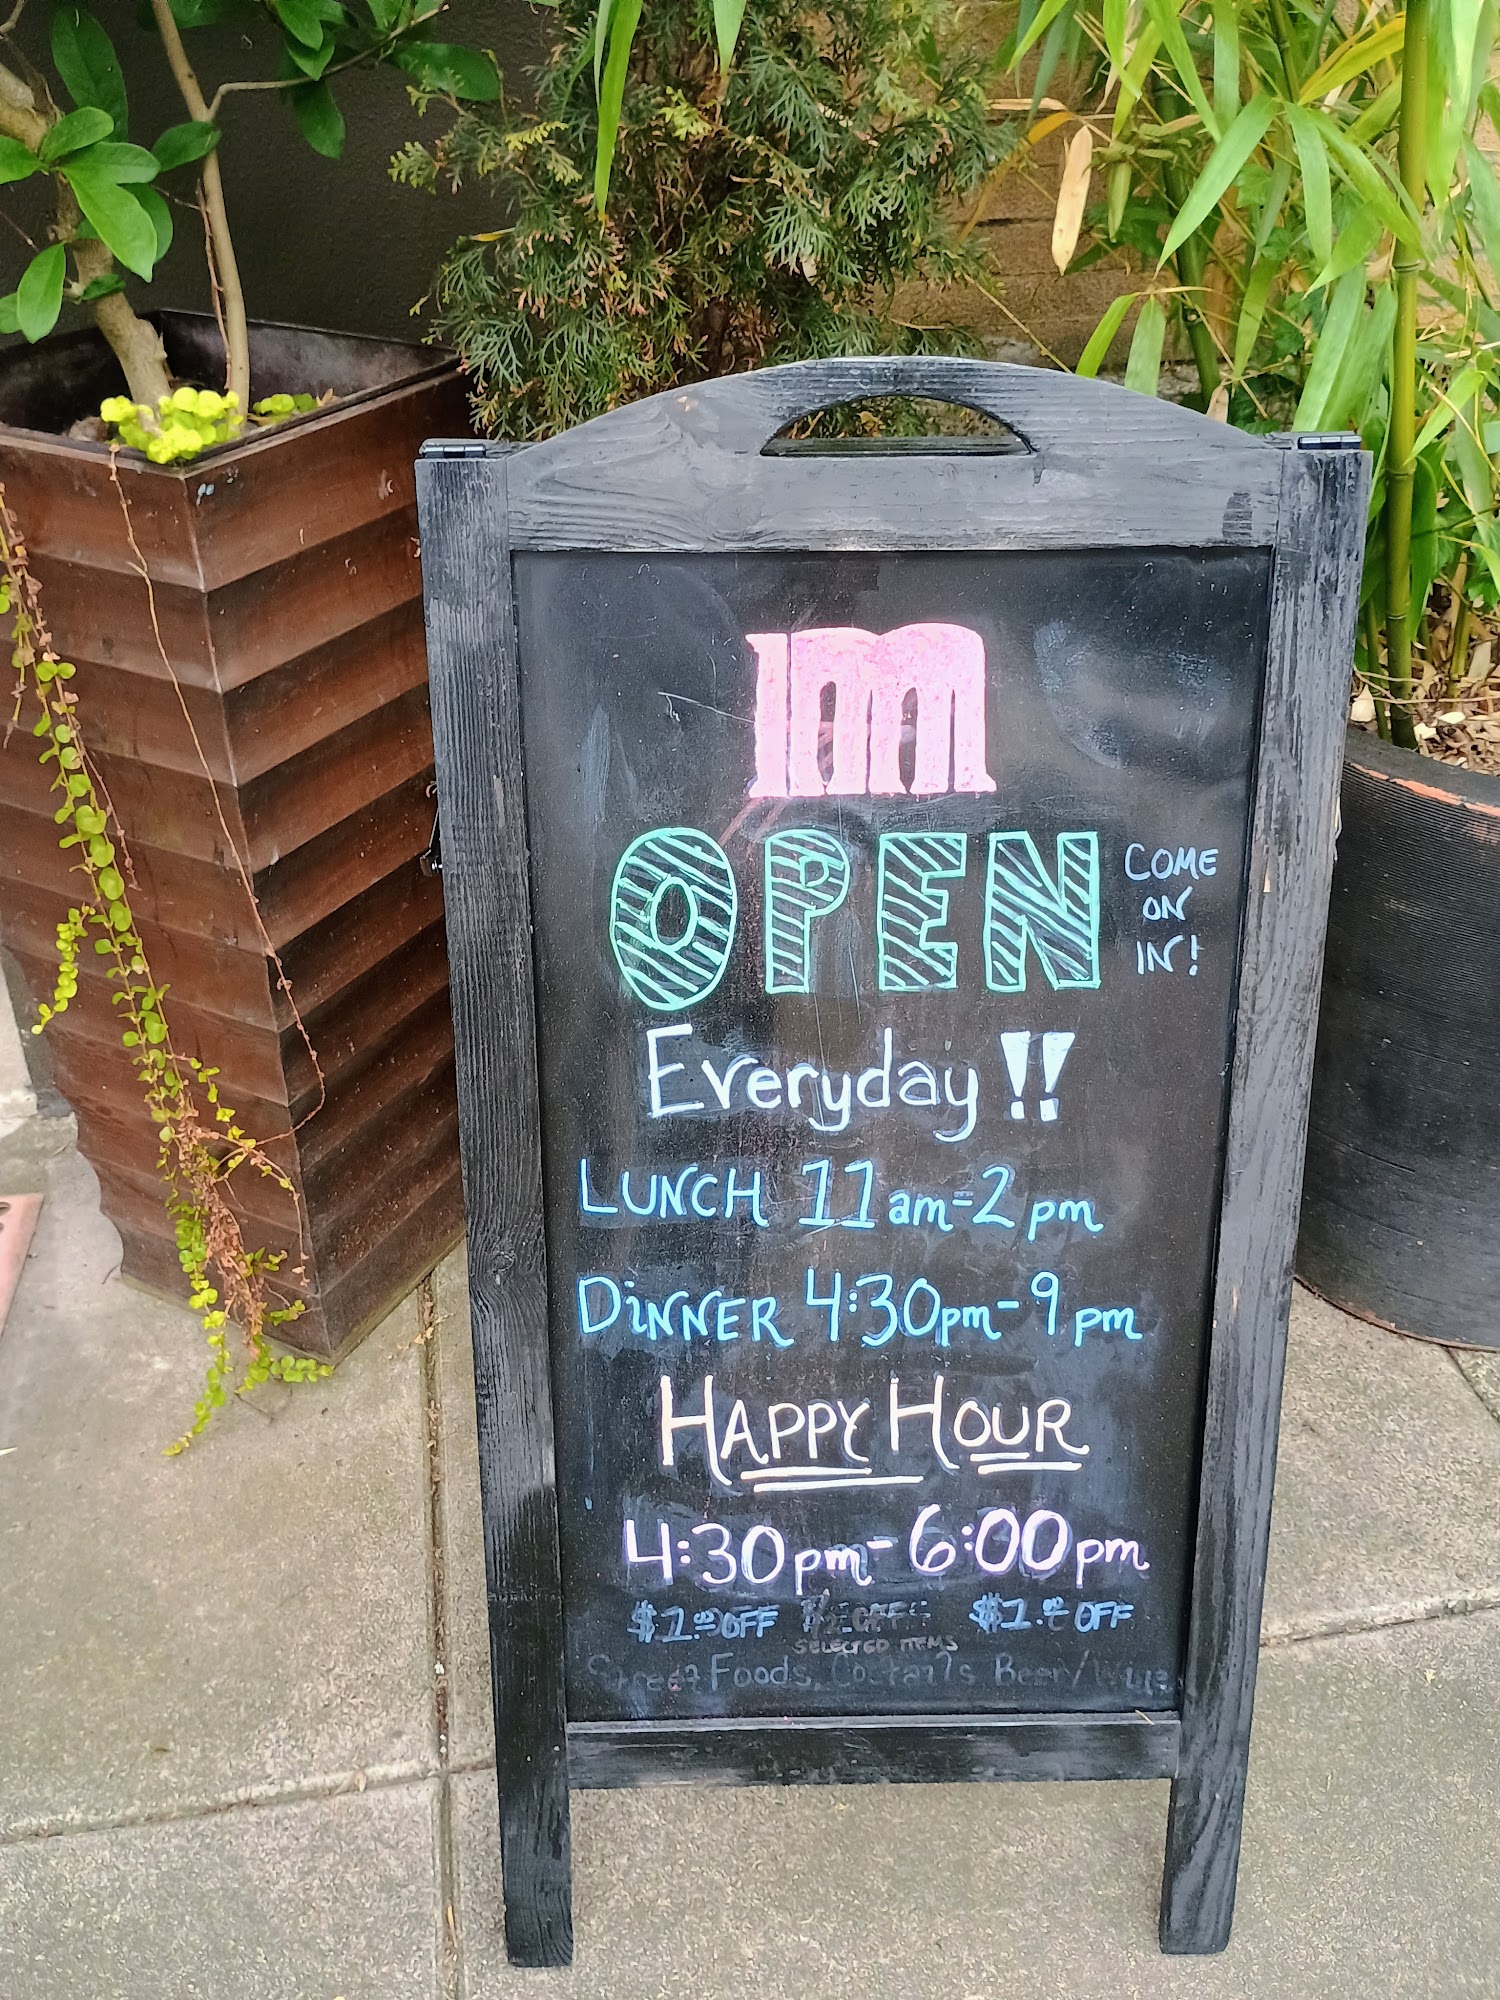 m
OPEN COME
ON
IN!
Everyday!!
LUNCH 11am-2pm
DINNER 4:30pm-9pm
HAPPY HOUR
4:30pm-6:00pm
$1.00 OFF $1.00 OFF
SELECTED ITEMS
Street Foods, Cocktails Beer/Wine